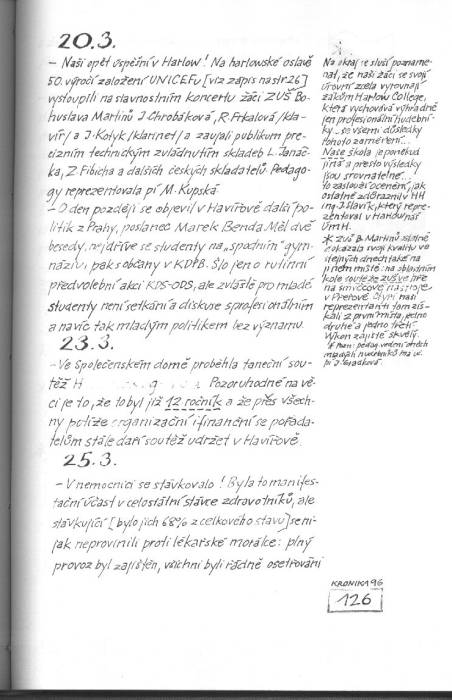 20.3.
– Naši opět úspěšní v Harlow! Na harlowské oslavě
50. výročí založení UNICEFu [viz zápis na str 26]
vystoupili na slavnostním koncertu žáci ZUŠ Bo-
huslava Martinů J. Chrobáková, R. Frkalová /kla-
vír/ a J. Kotyk /klarinet/ a zaujali publikum pre-
cizním technickým zvládnutím skladeb L. Janáč-
ka, Z. Fibicha a dalších českých skladatelů. Pedago-
gy reprezentovala pí M. Kupská
– O den později se objevil v Havířově další po-
litik z Prahy, poslanec Marek Benda. Měl dvě
besedy, nejdříve se studenty na „spodním" gym-
náziu, pak s občany v KDPB. Šlo jen o rutinní
předvolební akci KDS-ODS, ale zvláště pro mladé
studenty není setkání a diskuse s profesionálním
a navíc tak mladým politikem bez významu.
23.3.
– Ve Společenském domě proběhla taneční sou-
těž H Pozoruhodné na vě-
ci je to, že to byl již 12. ročník a že přes všech-
ny potíže organizační i finanční se pořada-
telům stále daří soutěž udržet v Havířově.
25.3.
– V nemocnici se stávkovalo! Byla to manifes-
tační účast v celostátní stávce zdravotníků, ale
stávkující [bylo jich 68% z celkového stavu] se ni-
jak neprovinili proti lékařské morálce: plný
provoz byl zajištěn, všichni byli řádně ošetřováni
Na okraj se sluší pozname-
nat, že naši žáci se svojí
úrovní zcela vyrovnají
žákům Harlow College,
která vychovává výhradně
jen profesionální hudební-
ky – se všemi důsledky
tohoto zaměření.
Naše škola je poněkud
jiná a přesto výsledky
jsou srovnatelné.
To zaslouží ocenění, jak
ostatně zdůraznil v HH
ing. J. Slavík, který repre-
zentoval v Harlow náš
ÚMH.
* ZUŠ B. Martinů
svoji kvalitu ve
stejných dnech také na
jiném místě: na oblastním
kole soutěže ZUŠ ve hře
na smyčcové nástroje
v Přerově. Čtyři naši
reprezentanti tam zís-
kali 2 první místa, jedno
druhé a jedno třetí.
Výkon zajisté skvělý.
KRONIKA 96
126